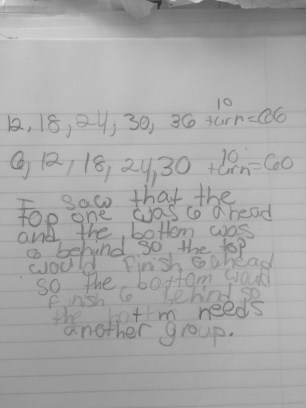 10
12, 18, 24, 30, 36 turn=66
10
6, 12, 18, 24, 30 turn=60
I saw that the
top one was 6 ahead
and the bottom was
6 behind so the top
would finish 6 ahead
so the bottom would
finsh 6 behind so
the bottm needs
another group.